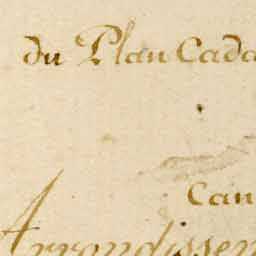 du Plan Cada
Can
Arrondissen